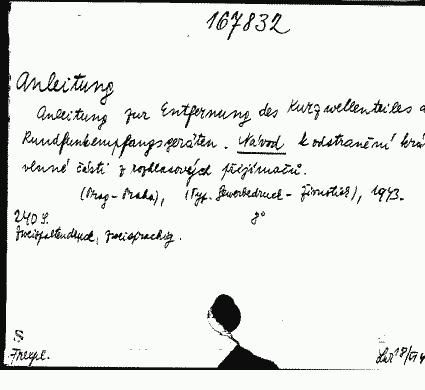 167832
Anleitung
Anleitung zur Entfernung des Kurzwellenteiles a
Rundfunkempfangsgeräten. Návod k odstranění krát
vlnné části z rozhlasových přijímačů.
(Prag - Praha), (Typ. Gewerbedruck - ), 1943.
240 S. 8°
Zweispaltendruck, zweisprachig.
S